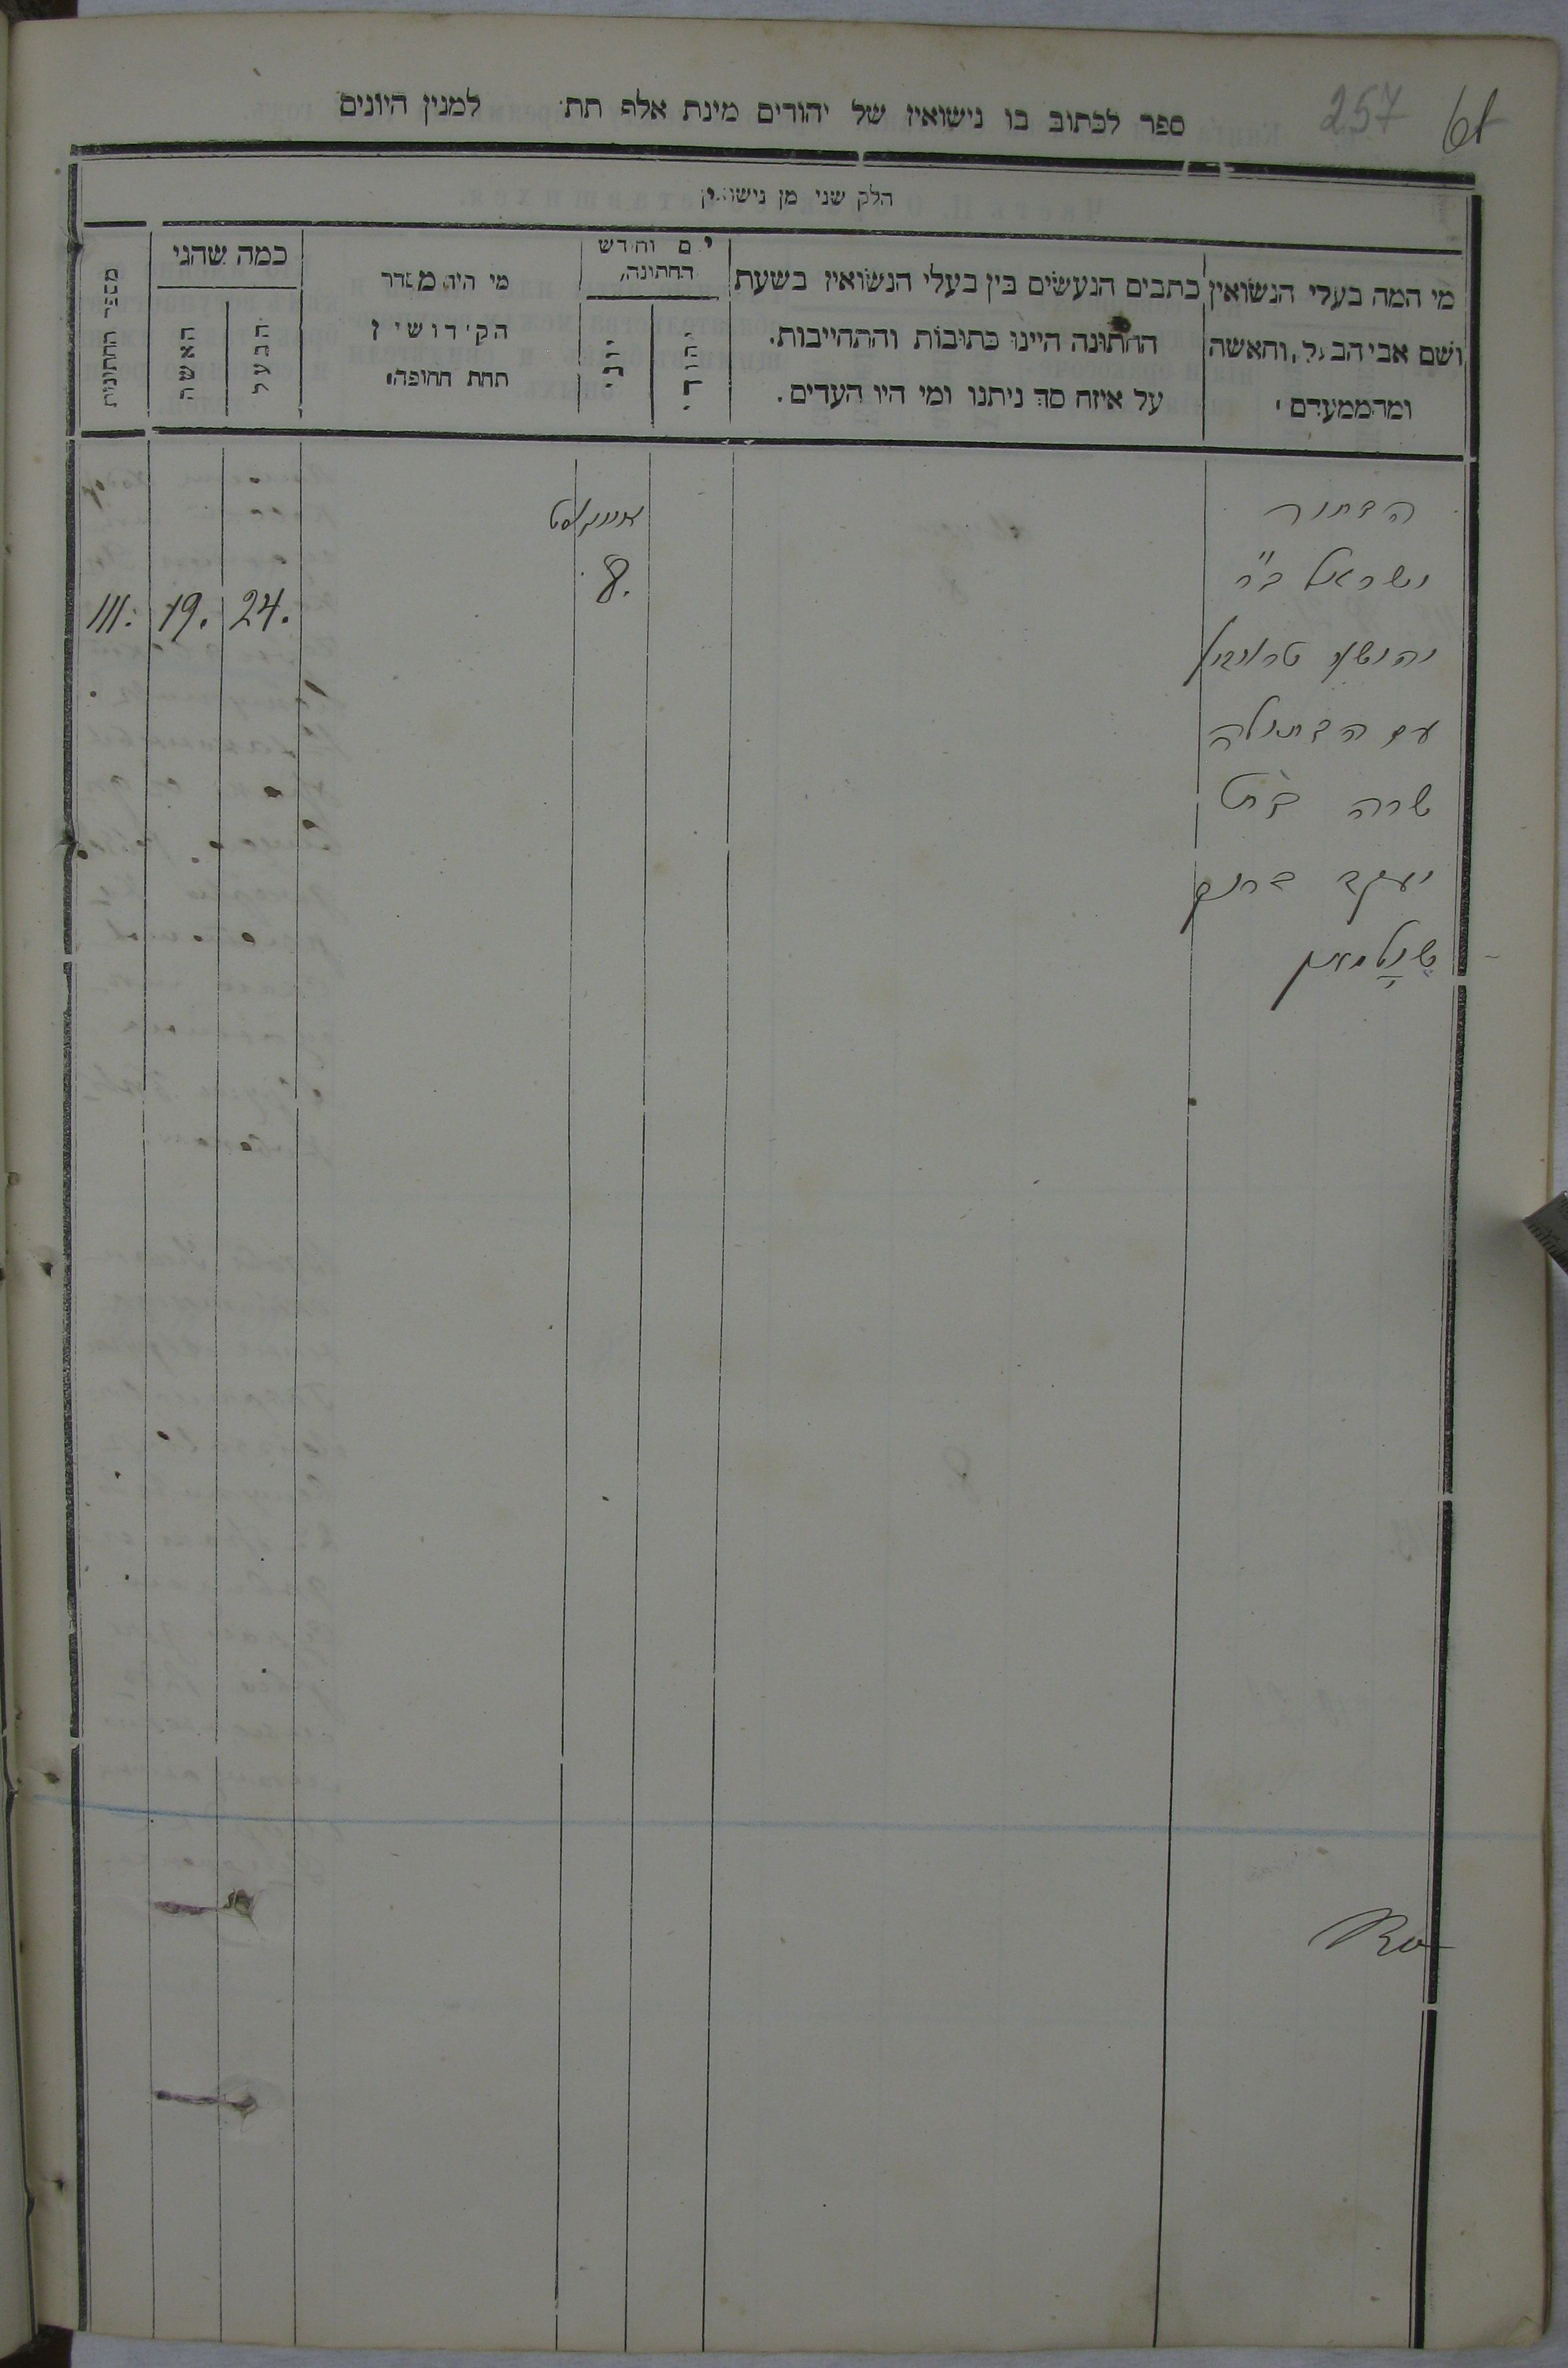 257 61
ספר לכתוב בו נישואין של יהודים מינת אלף תת למנין היונים
חלק שני מן נישואין
מי המה בעלי הנשואין
ושם אבי הבעל, והאשה
ומהממעדם
כתבים הנעשים בין בעלי הנשואין בשעת
החתונה היינו כתובות והתחייבות.
על איזה סך ניתנו ומי היו העדים.
יום וחדש
החתונה,
יהודי
יוני
מי היה מסדר
הקידושין
תחת החופה
כמה שהגי
הבעל
האשה
מספר החתונות
הבחור
ישראל ב״ר
יהושע
עם הבתולה
שרה בת
יעקב ברוך
אווגוסט
8.
24.
19.
111.